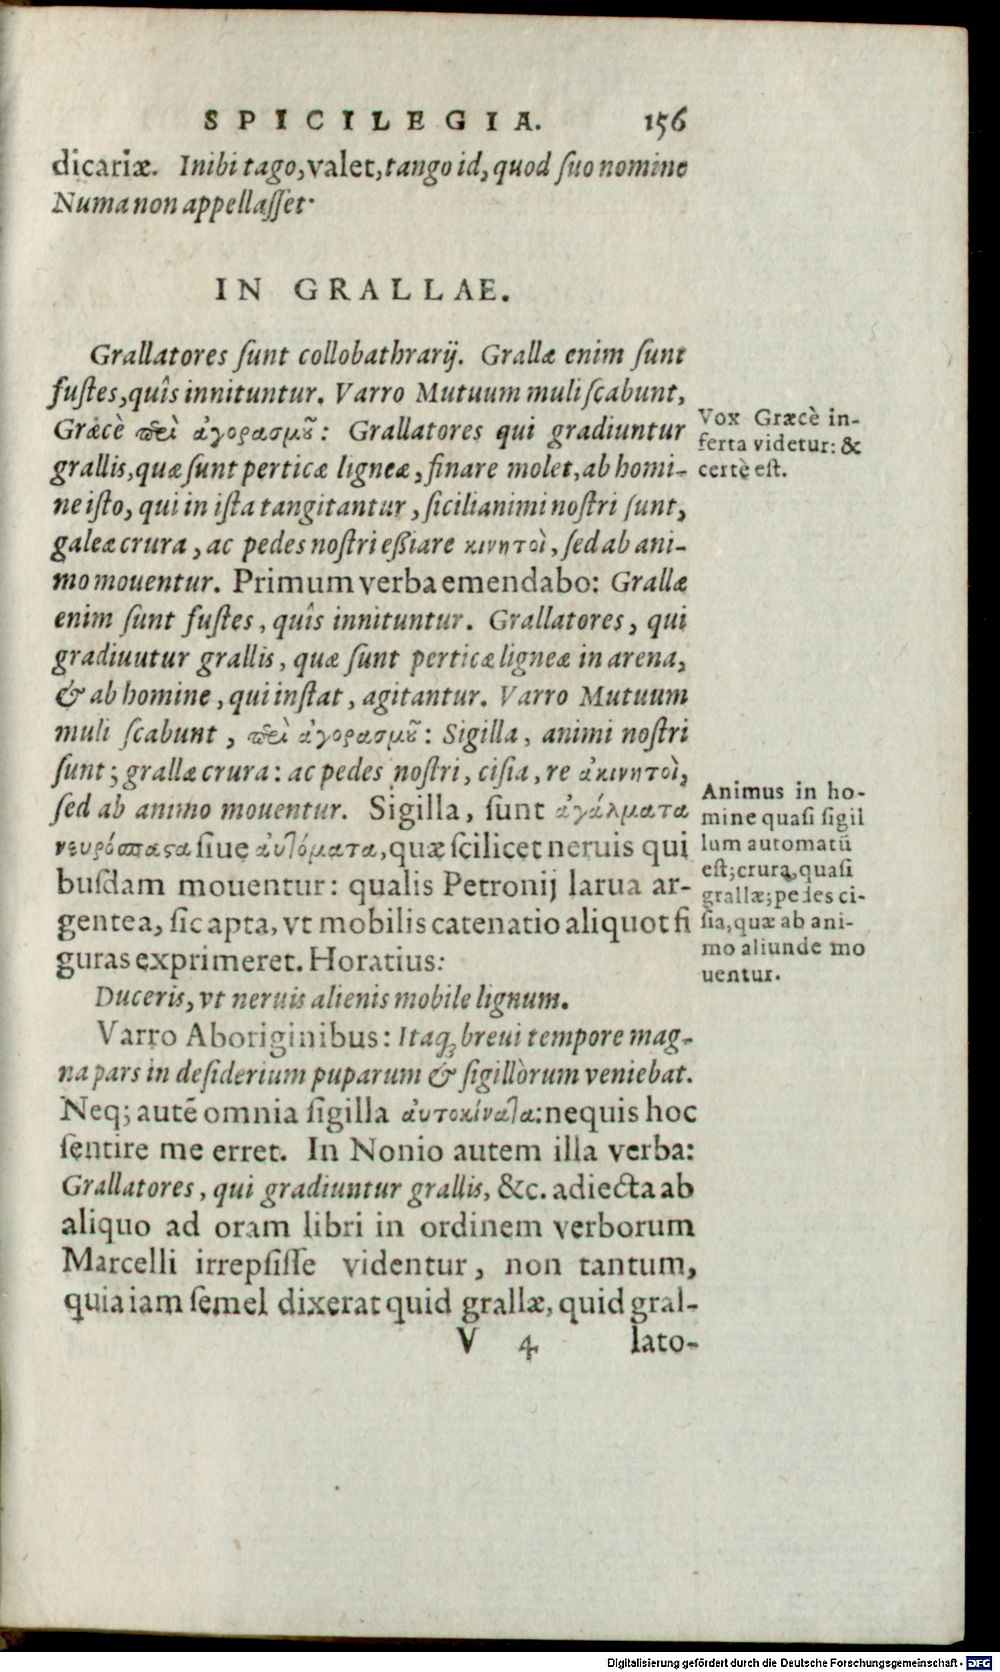 SPICILEGIA. 156
dicariæ. Inibi tago, valet, tango id, quod ſuo nomine
Numa non appellaſſet·
IN GRALLAE.
Grallatores ſunt collobathrarij. Grallæ enim ſunt
fuſtes, quîs innituntur. Varro Mutuum muli ſcabunt,
Græcè πεὶ ἀγορασμοῦ: Grallatores qui gradiuntur
grallis, quæ ſunt perticæ ligneæ, ſinare molet, ab homi-
ne iſto, qui in iſta tangitantur, ſicilianimi noſtri ſunt,
galeæ crura, ac pedes noſtri eßiare κινητοὶ, ſed ab ani-
mo mouentur. Primum verba emendabo: Grallæ
enim ſunt fuſtes, quîs innituntur. Grallatores, qui
gradiuutur grallis, quæ ſunt perticæ ligneæ in arena,
& ab homine, qui inſtat, agitantur. Varro Mutuum
muli ſcabunt, πεὶ ἀγορασμοῦ: Sigilla, animi noſtri
ſunt; grallæ crura: ac pedes noſtri, ciſia, re ἀκινητοὶ,
ſed ab animo mouentur. Sigilla, ſunt ἀγάλματα
νευρόσπαςα ſiue ἀυτόματα, quæ ſcilicet neruis qui
buſdam mouentur: qualis Petronij larua ar-
gentea, ſic apta, vt mobilis catenatio aliquot fi
guras exprimeret. Horatius:
Duceris, vt neruis alienis mobile lignum.
Varro Aboriginibus: Itaq; breui tempore mag-
na pars in deſiderium puparum & ſigillòrum veniebat.
Neq; autẽ omnia ſigilla ἀυτοκίναται: nequis hoc
ſentire me erret. In Nonio autem illa verba:
Grallatores, qui gradiuntur grallis, &c. adiecta ab
aliquo ad oram libri in ordinem verborum
Marcelli irrepſiſſe videntur, non tantum,
quia iam ſemel dixerat quid grallæ, quid gral-
V 4 lato-
Vox Græcè in-
ferta videtur: &
certè eſt.
Animus in ho-
mine quaſi ſigil
lum automatũ
eſt; crura, quaſi
grallæ; pedes ci-
ſia, quæ ab ani-
mo aliunde mo
uentur.
Digitalisierung gefördert durch die Deutsche Forschungsgemeinschaft - DFG